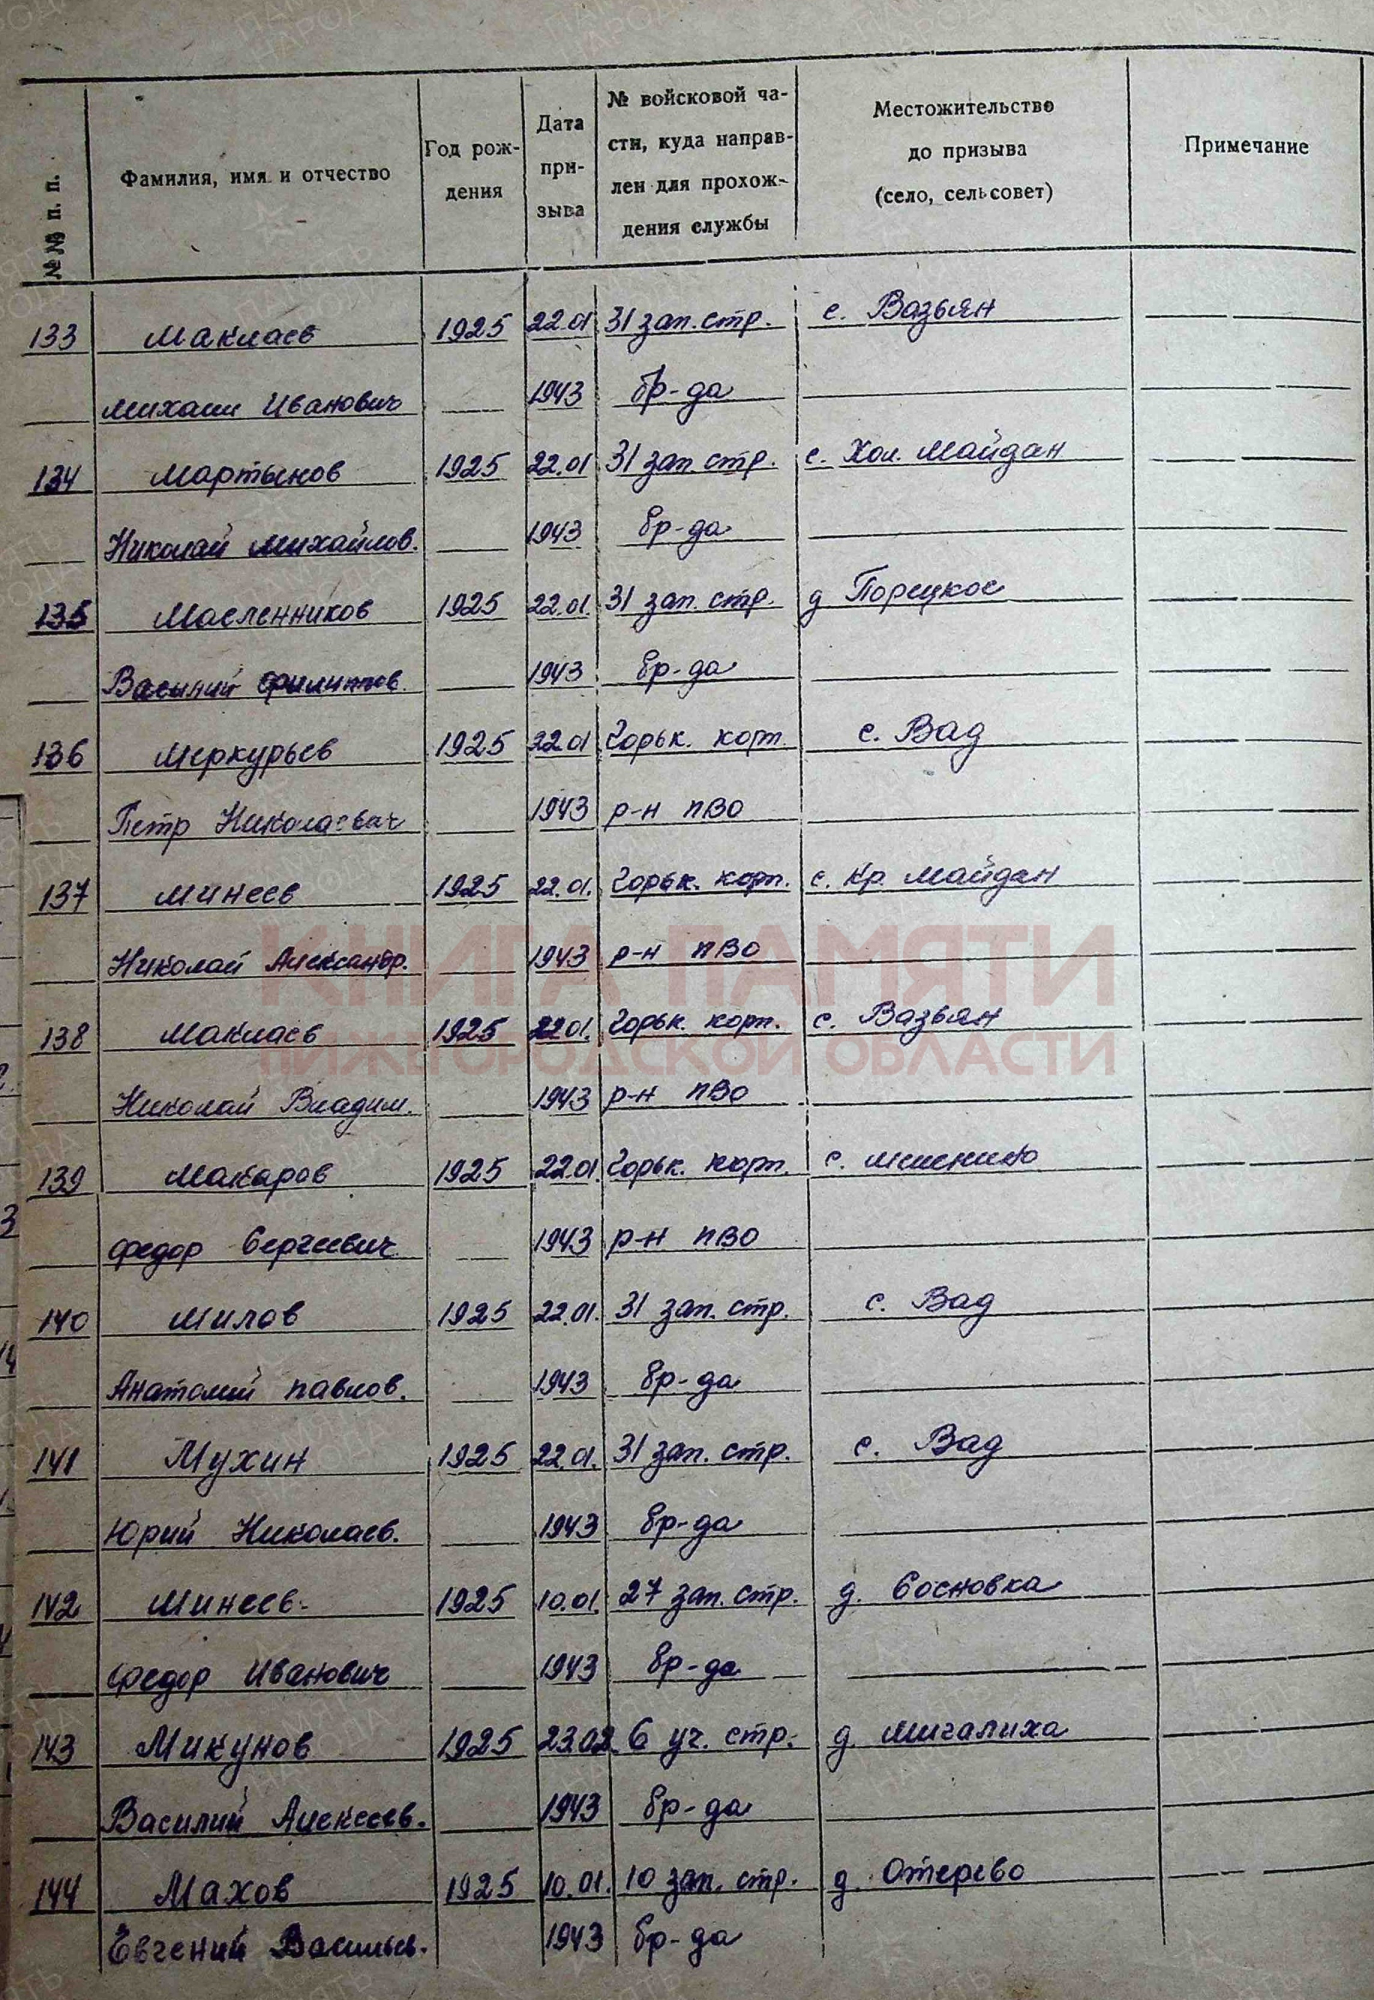 №№ п. п.
Фамилия, имя и отчество
Год рож-
дения
Дата
при-
зыва
№ войсковой ча-
сти, куда направ-
лен для прохож-
дения службы
Местожительство
до призыва
(село, сельсовет)
Примечание
133 Маклаев 1925 22.01 31 зап. стр. с. Вазьян
Михаил Иванович 1943 бр-да
134 Мартынов 1925 22.01 31 зап стр. с. Хол. Майдан
Николай Михайлов. 1943 бр-да
135 Масленников 1925 22.01. 31 зап. стр. д Порецкое
Василий Филиппов. 1943 бр-да
136 Меркурьев 1925 22.01 Горьк. корп. с. Вад
Петр Николаевич 1943 р-н ПВО
137 Минеев 1925 22.01. Горьк. корп. с. Кр. Майдан
Николай Александр. 1943 р-н ПВО
КНИГА ПАМЯТИ
138 Маклаев 1925 22.01. Горьк. корп. с. Вазьян
НИЖЕГОРОДСКОЙ ОБЛАСТИ
Николай Владим. 1943 р-н ПВО
139 Макаров 1925 22.01. Горьк. корп. с.
Федор Сергеевич 1943 р-н ПВО
140 Милов 1925 22.01. 31 зап. стр. с. Вад
Анатолий Павлов. 1943 бр-да
141 Мухин 1925 22.01. 31 зап. стр. с. Вад
Юрий Николаев. 1943 бр-да
142 Минеев 1925 10.01. 27 зап. стр. д. Сосновка
Федор Иванович 1943 бр-да
143 Микунов 1925 23.02. 6 уч. стр. д. Мигалиха
Василий Алексеев. 1943 бр-да
144 Махов 1925 10.01. 10 зап. стр. д. Отерево
Евгений Васильев. 1943 бр-да